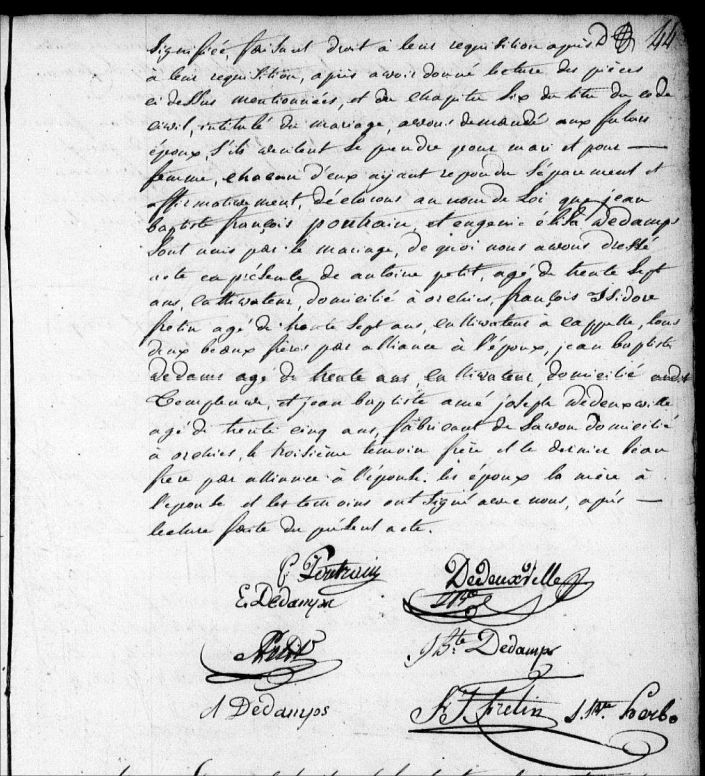 44
signifiée, faisant droit à leur requisition après
à leur requisition, après avoir donné lecture des pièces
ci dessus mentionnées, et du chapitre six du titre du code
civil, intitulé du mariage, avons demandé aux futurs
époux, s'ils veulent se prendre pour mari et pour —
femme, chacun d'eux ayant repondu séparement et
affirmativement, déclarons au nom de Loi que jean
baptiste françois pontrain, et eugenie élisa dedamps
sont unis par le mariage, de quoi nous avons dressé
acte en présence de antoine petit, agé de trente sept
ans, cultivateur, domicilié à orchies, françois Isidore
fretin agé de trente sept ans, cultivateur à cappelle, tous
deux beaux frères par alliance à l'époux, jean baptiste
dedams agé de trente ans cultivateur, domicilié audit
Templeuve, et jean baptiste amé joseph dedeuxville
agé de trente cinq ans, fabricant de savon domicilié
à orchies, le troisième temoin frère et le dernier beau
frere par alliance à l'épouse. les époux la mère à
l'epouse et les temoins ont signé avec nous, après —
lecture faite du présent acte.
Pontrain Dedeuxville
E. Dedamps
Petit
J Bte Dedamps
A Dedamps F I Fretin